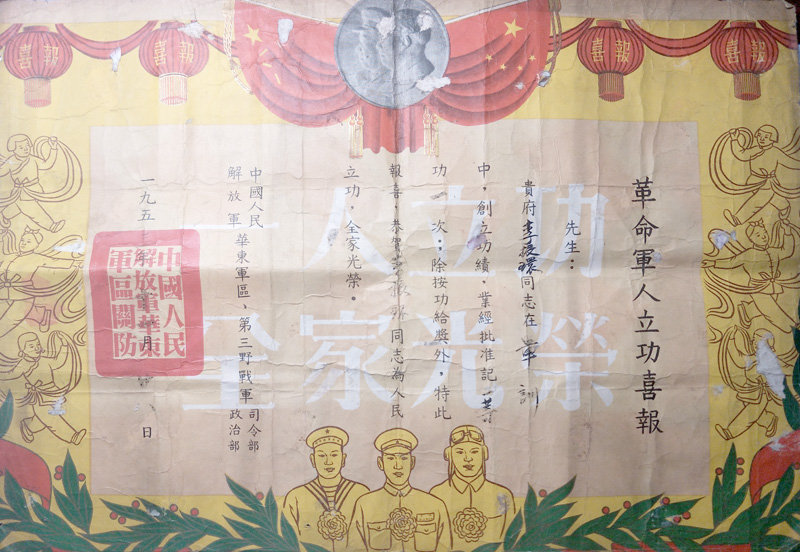 喜報
喜報
喜報
喜報
一人立功
全家光榮
革命軍人立功喜報
先生：
貴府李 環同志在軍訓
中，創立功績，業經批准記 等
功一次：除按功給獎外，特此
報喜，恭賀 同志為人民
立功，全家光榮。
中國人民解放軍華東軍區、第三野戰軍司令部政治部
一九五 年 月 日
中國人民解放軍華東軍區關防